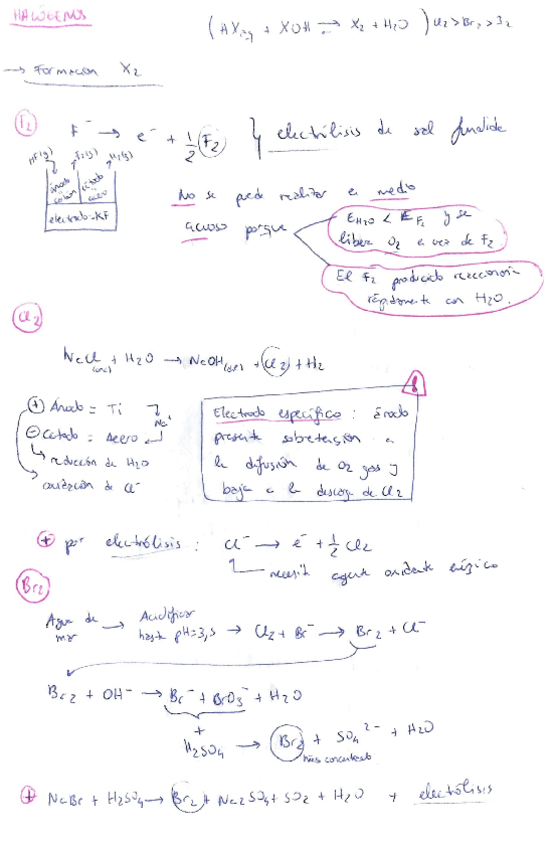 HALÓGENOS
(HXaq + XOH → X2 + H2O) Cl2 > Br2 > I2
→ Formación X2
F2
F⁻ → e⁻ + 1/2 F2 } electrólisis de sal fundida
HF(g) F2(g) H2(g)
ánodo carbón cátodo acero
electrolito-KF
No se puede realizar en medio
acuoso porque
EH2O < EF2 y se
libera O2 en vez de F2
El F2 producido reaccionaría
rápidamente con H2O.
Cl2
NaCl(ac) + H2O → NaOH(ac) + Cl2 + H2
+ Ánodo = Ti
Na+
- Cátodo = Acero
↳ reducción de H2O
oxidación de Cl⁻
!
Electrodo específico: ánodo
presente sobretensión a
la difusión de O2 gas y
baja a la descarga de Cl2
+ por electrólisis: Cl⁻ → e⁻ + 1/2 Cl2
necesita agente oxidante enérgico
Br2
Agua de mar → Acidificar hasta pH=3,5 → Cl2 + Br⁻ → Br2 + Cl⁻
Br2 + OH⁻ → Br⁻ + BrO3⁻ + H2O
+
H2SO4 → Br2 + SO4²⁻ + H2O
más concentrado
+ NaBr + H2SO4 → Br2 + Na2SO4 + SO2 + H2O + electrólisis